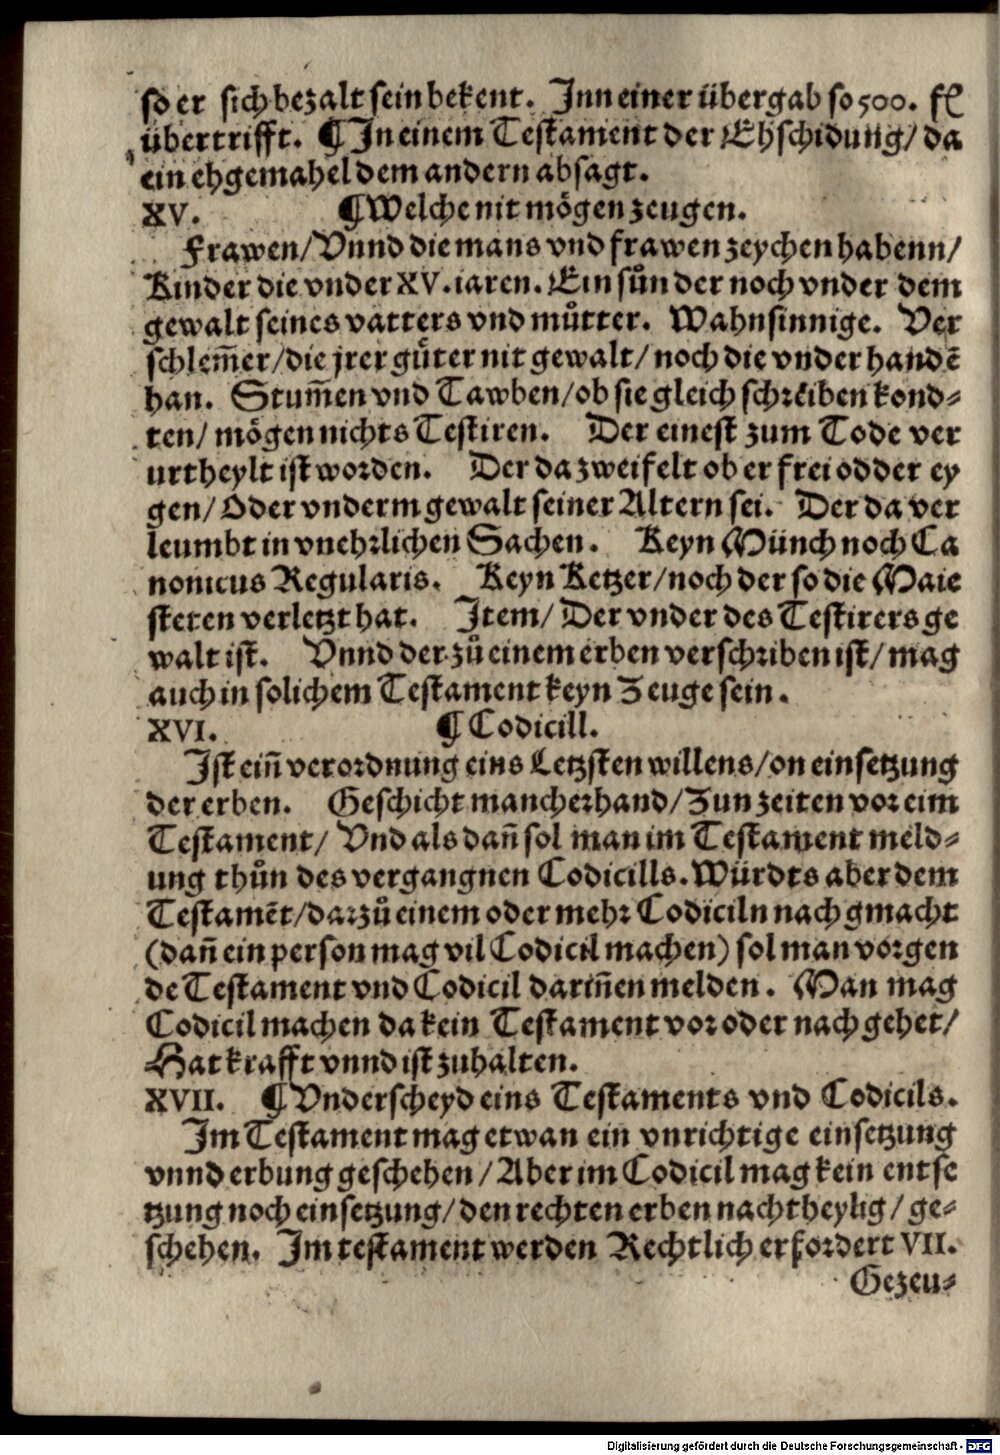 so er sich bezalt sein bekent. Inn einer übergab so 500. fl
übertrifft. ¶ In einem Testament der Ehschidung/ da
ein ehgemahel dem andern absagt.
XV. ¶ Welche nit mögen zeugen.
Frawen/ Vnnd die mans vnd frawen zeychen habenn/
Kinder die vnder XV. iaren. Ein sůn der noch vnder dem
gewalt seines vatters vnd můtter. Wahnsinnige. Ver
schlem̃er/ die jrer gůter nit gewalt/ noch die vnder handẽ
han. Stum̃en vnd Tawben/ ob sie gleich schreiben kond-
ten/ mögen nichts Testiren. Der einest zum Tode ver
urtheylt ist worden. Der da zweifelt ob er frei odder ey
gen/ Oder vnderm gewalt seiner Altern sei. Der da ver
leumbt in vnehrlichen Sachen. Keyn Münch noch Ca
nonicus Regularis. Keyn Ketzer/ noch der so die Maie
steten verletzt hat. Item/ Der vnder des Testirers ge
walt ist. Vnnd der zů einem erben verschriben ist/ mag
auch in solichem Testament keyn Zeuge sein.
XVI. ¶ Codicill.
Ist ein̄ verordnung eins Letzsten willens/ on einsetzung
der erben. Geschicht mancherhand/ Zun zeiten vor eim
Testament/ Vnd als dañ sol man im Testament meld-
ung thůn des vergangnen Codicills. Würdts aber dem
Testamẽt/ darzů einem oder mehr Codiciln nach gmacht
(dañ ein person mag vil Codicil machen) sol man vorgen
de Testament vnd Codicil dariñen melden. Man mag
Codicil machen da kein Testament vor oder nach gehet/
Hat krafft vnnd ist zuhalten.
XVII. ¶ Vnderscheyd eins Testaments vnd Codicils.
Im Testament mag etwan ein vnrichtige einsetzung
vnnd erbung geschehen/ Aber im Codicil mag kein entse
tzung noch einsetzung/ den rechten erben nachtheylig/ ge-
schehen. Im testament werden Rechtlich erfordert VII.
Gezeu-
Digitalisierung gefördert durch die Deutsche Forschungsgemeinschaft - DFG